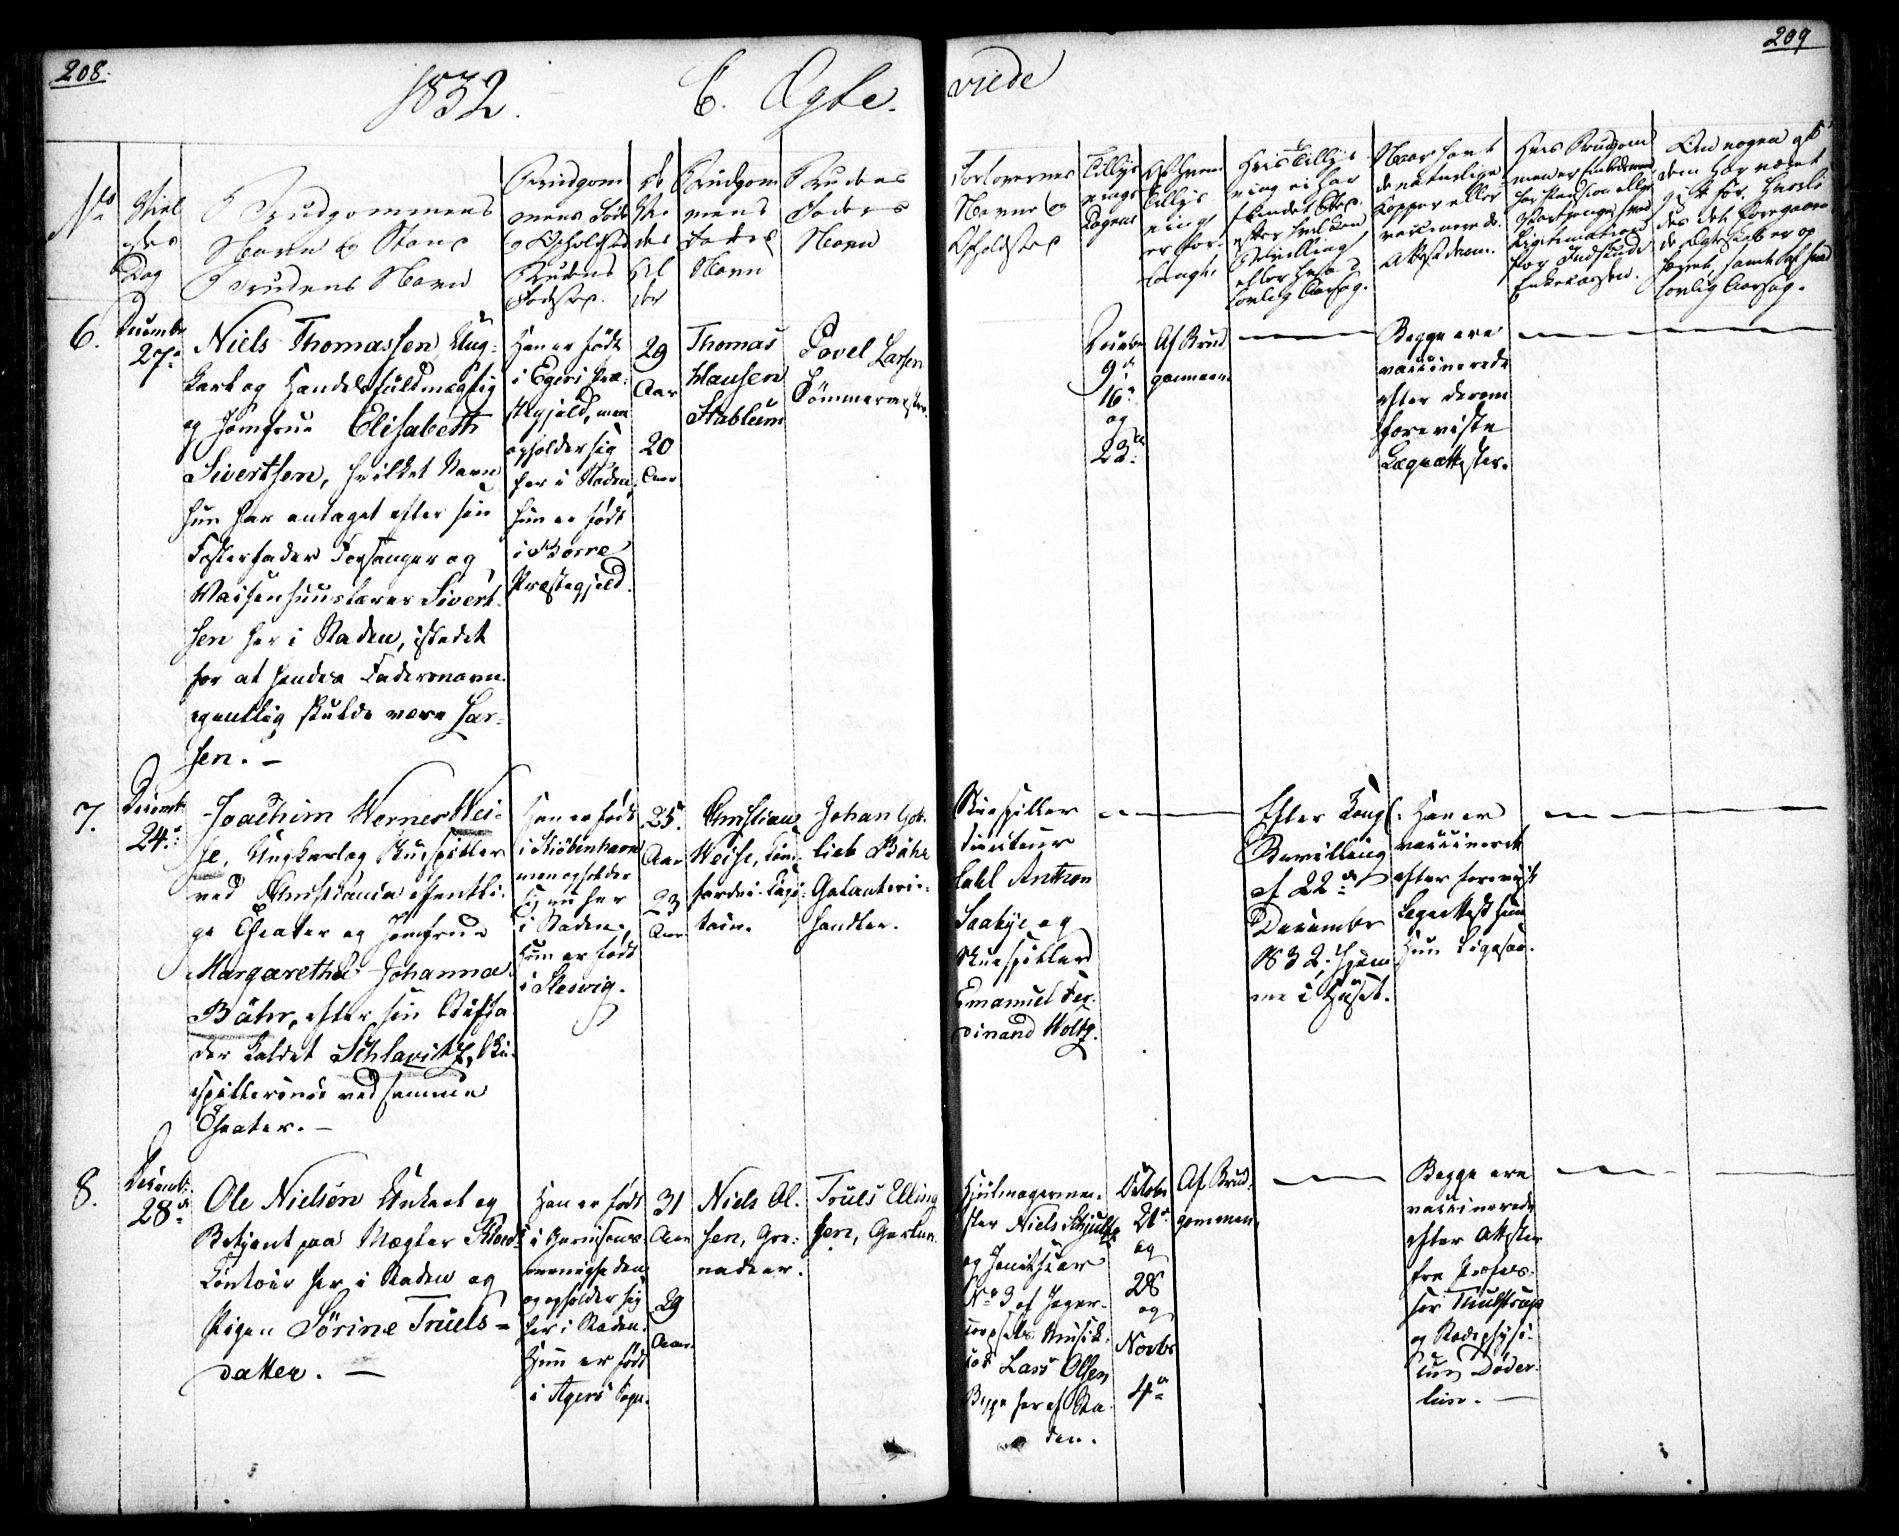 208.
1832.
C. Ægte-
viede
209
No
Viel
ses
Dag
Brudgommens
Navn og Stand
Brudens Navn
Brudgom
mens Føde
og Opholdsted
Brudens
Fødested.
Al
der
Brudgom
mens
Faders
Navn
Brudens
Faders
Navn
Forlovernes
Navne og
Opholdsted
Tillys
nings
Dagene
Af hvem
Tillys
ning
er for-
langt.
Hvis Tillys-
ning ei har
fundet Sted,
efter hvilken
Bevilling
eller hvad
lovlig Aarsag.
Naar havt
de naturlige
Kopper eller
vaccinerede.
Attest derom.
6.
Decembr
27de
Niels Thomassen, Ung-
karl og Handelsfuldmægtig
og Jomfrue Elisabeth
Sivertsen, hvilket Navn
hun har antaget efter sin
Fosterfader Forsanger og
Waisenhuuslærer Sivert-
sen her i Staden, istedet
for at hendes Fadersnavn
egentlig skulde være Lar-
sen. –
Han er født
i Egers Præ-
stegjeld, men
opholder sig
her i Staden,
hun er født
i Borre
Præstegjeld.
29
Aar
20
Aar
Thomas
Clausen
Stablum
Povel Larsen
Tømmermester.
Decembr
9de
16de
og
23de
Af Brud
gommen
Begge ere
vaccinerede
efter derom
foreviste
Lægeattester.
7.
Decembr
24de
Joachim Werner Wei-
se, Ungkarl og Skuespiller
ved Christiania offentli-
ge Theater og Jomfrue
Margaretha Johanna
Bähr, efter sin Stiffa
der kaldet Schlavitz, Sku-
espillerinde ved samme
Theater. –
Han er født
i Kiöbenhavn
men opholder
sig nu her
i Staden.
Hun er født
i Slesvig.
25.
Aar
23
Aar
Christian
Weise, Kof-
fardie-Capi-
tain.
Johan Got-
lieb Bähr
Galanterie-
handler.
Skuespiller
Directeur
Carl Anthon
Saabye og
Skuespiller
Emanuel Fer-
dinand Holtz.
Efter Kongl.
Bevilling
af 22de
December
1832, hjem-
me i Huset.
Han er
vaccineret
efter forevist
Lægeattest
Hun ligesaa.
8.
Decembr
28de
Ole Nielsen Unkarl og
Betjent paa Mægler
Contoir her i Staden og
Pigen Sörine Truels-
datter. –
Han er født
i Garnisons-
menigheden
og opholder sig
her i Staden.
Hun er født
i Agers Sogn.
31
Aar
29
Aar.
Niels Ol-
sen, Gre-
nadeer.
Truls Elling
sen, Gartner.
Hjulmagerme-
ster Niels Schjultz
og Janitshar
No 3 af Jæger-
corpsets Musik-
cor Lars Olsen
Begge her af Sta-
den.
Octobr
21de
og
28
og
Novbr
4de
Af Brud-
gommen.
Begge ere
vaccinerede
efter Attester
fra Profes-
sor Thulstrup
og Stadsphysi-
cus Döder-
lein. –